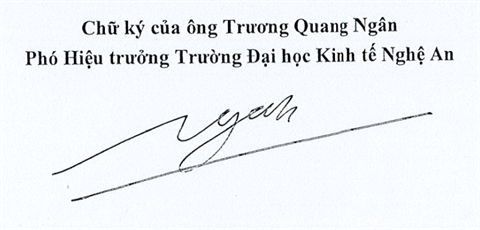 Chữ ký của ông Trương Quang Ngân
Phó Hiệu trưởng Trường Đại học Kinh tế Nghệ An